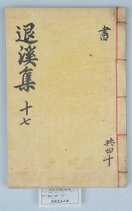 書
退溪集 十七
共四十